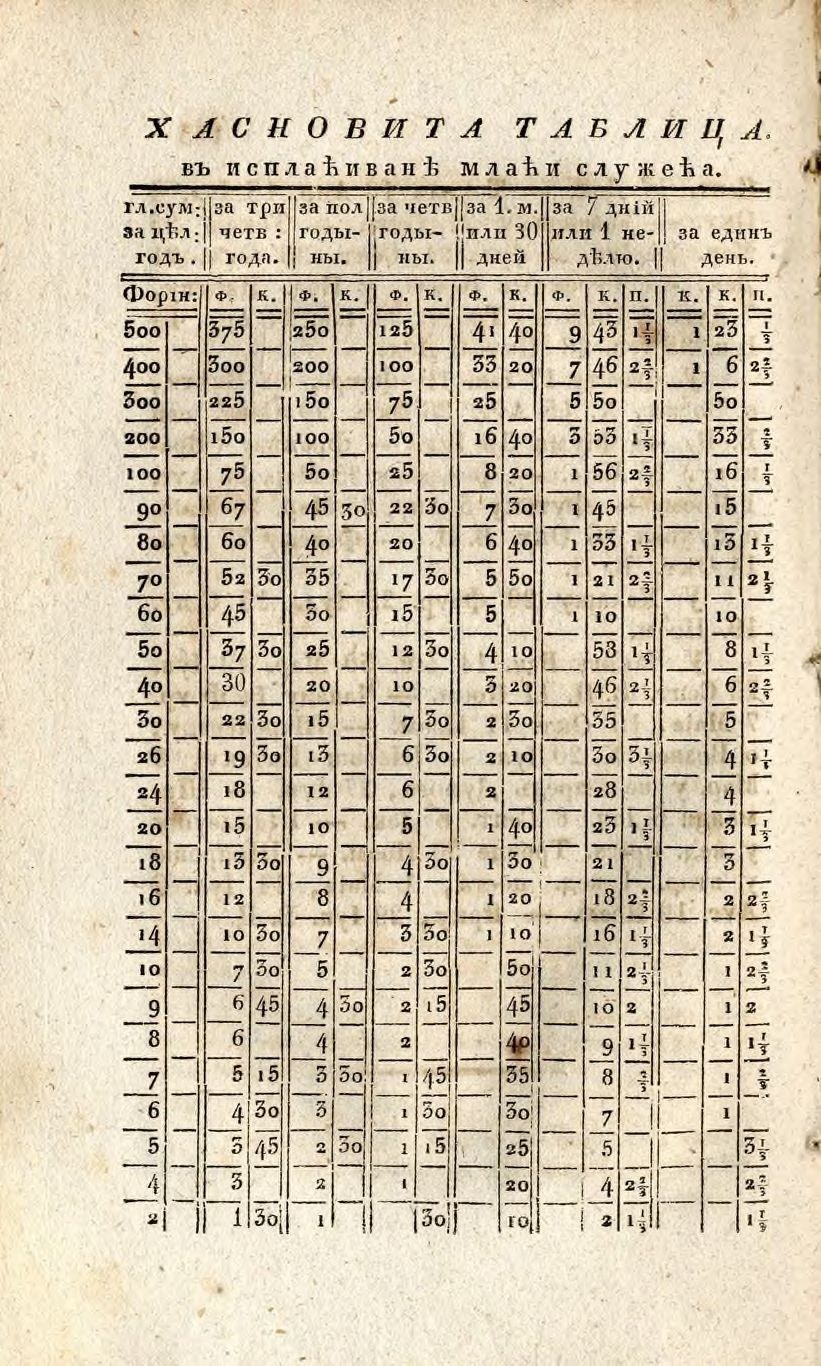 ХАСНОВИТА ТАБЛИЦА.
въ исплаћиванѣ млаћи служећа.
гл.сум: за три за пол за четв за 1. м. за 7 дній
за цѣл: четв : годы- годы- или 30 или 1 не- за единъ
годъ . года. ны. ны. дней дѣлю. день.
Форін: Ф. К. Ф. К. Ф. К. Ф. К. Ф. К. П. К. К. П.
500 375 250 125 41 40 9 43 1⅓ 1 23 ⅓
400 300 200 100 33 20 7 46 2⅔ 1 6 2⅔
300 225 150 75 25 5 50 50
200 150 100 50 16 40 3 53 1⅓ 33 ⅔
100 75 50 25 8 20 1 56 2⅔ 16 ⅓
90 67 45 30 22 30 7 30 1 45 15
80 60 40 20 6 40 1 33 1⅓ 13 1⅓
70 52 30 35 17 30 5 50 1 21 2⅔ 11 2⅓
60 45 30 15 5 1 10 10
50 37 30 25 12 30 4 10 53 1⅓ 8 1⅓
40 30 20 10 3 20 46 2⅓ 6 2⅔
30 22 30 15 7 30 2 30 35 5
26 19 30 13 6 30 2 10 30 3⅓ 4 1⅓
24 18 12 6 2 28 4
20 15 10 5 1 40 23 1⅓ 3 1⅓
18 13 30 9 4 30 1 30 21 3
16 12 8 4 1 20 18 2⅔ 2 2⅔
14 10 30 7 3 30 1 10 16 1⅓ 2 1⅓
10 7 30 5 2 30 50 11 2⅓ 1 2⅔
9 6 45 4 30 2 15 45 10 2 1 2
8 6 4 2 40 9 1⅓ 1 1⅓
7 5 15 3 30 1 45 35 8 ⅔ 1 ⅔
6 4 30 3 1 30 30 7 1
5 3 45 2 30 1 15 25 5 3⅓
4 3 2 1 20 4 2⅔ 2⅔
2 1 30 1 30 10 2 1⅓ 1⅓